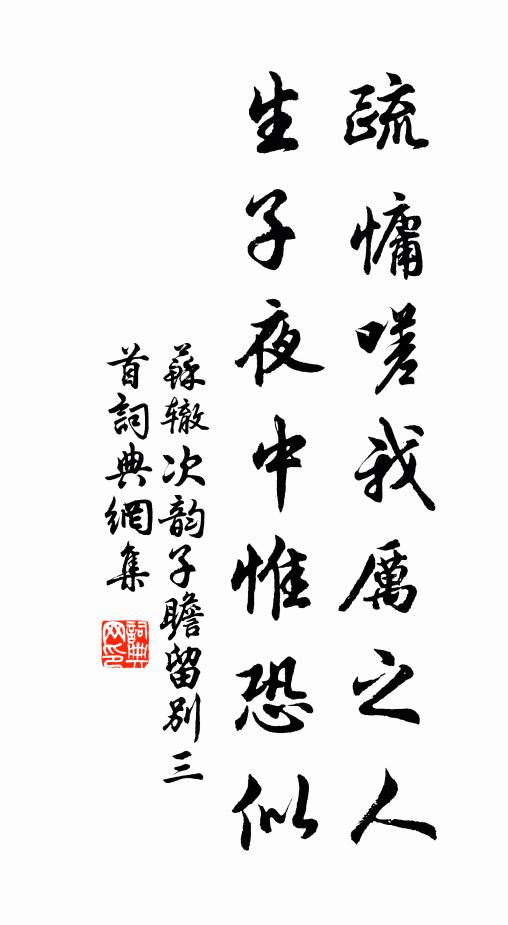 疏慵嗟我厲之人
生子夜中惟恐似
蘇辙次韵子瞻留别三
首詞典網集
詞典
网印